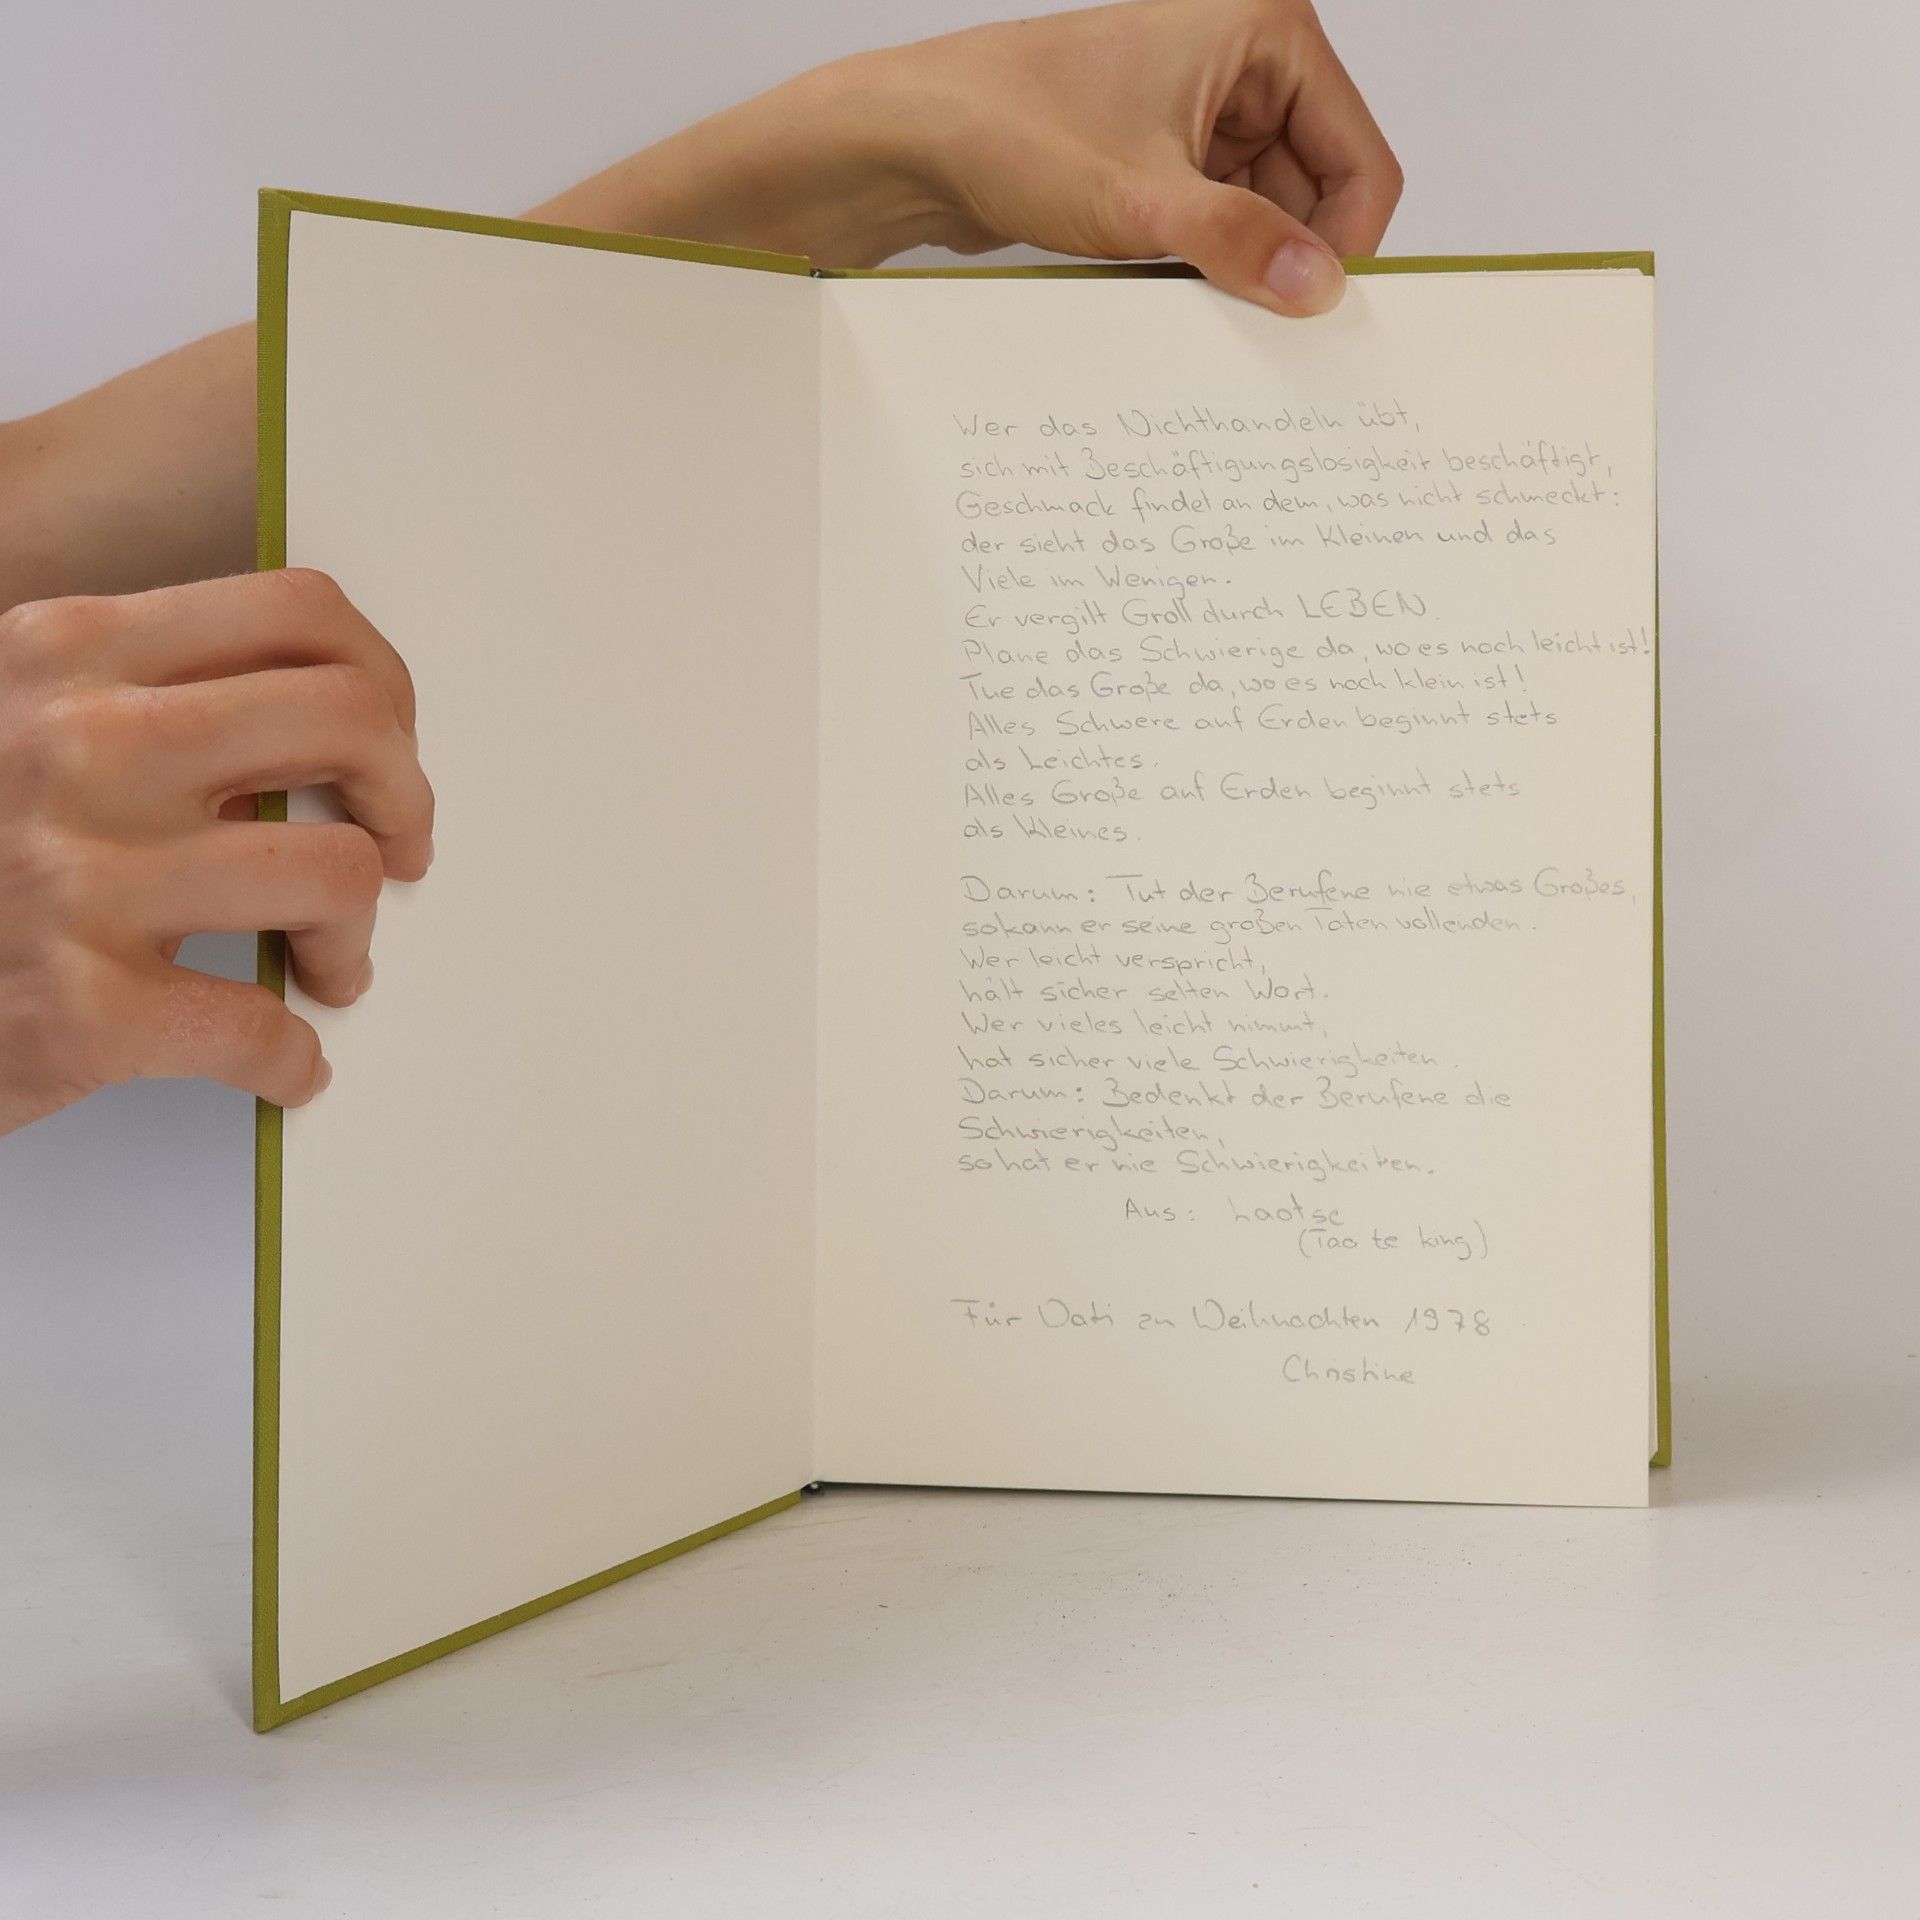 Wer das Nichthandeln übt,
sich mit Beschäftigungslosigkeit beschäftigt,
Geschmack findet an dem, was nicht schmeckt:
der sieht das Große im Kleinen und das
Viele im Wenigen.
Er vergilt Groll durch LEBEN.
Plane das Schwierige da, wo es noch leicht ist!
Tue das Große da, wo es noch klein ist!
Alles Schwere auf Erden beginnt stets
als Leichtes.
Alles Große auf Erden beginnt stets
als Kleines.
Darum: Tut der Berufene nie etwas Großes,
so kann er seine großen Taten vollenden.
Wer leicht verspricht,
hält sicher selten Wort.
Wer vieles leicht nimmt,
hat sicher viele Schwierigkeiten.
Darum: Bedenkt der Berufene die
Schwierigkeiten,
so hat er nie Schwierigkeiten.
Aus: Laotse
(Tao te king)
Für Vati zu Weihnachten 1978
Christine